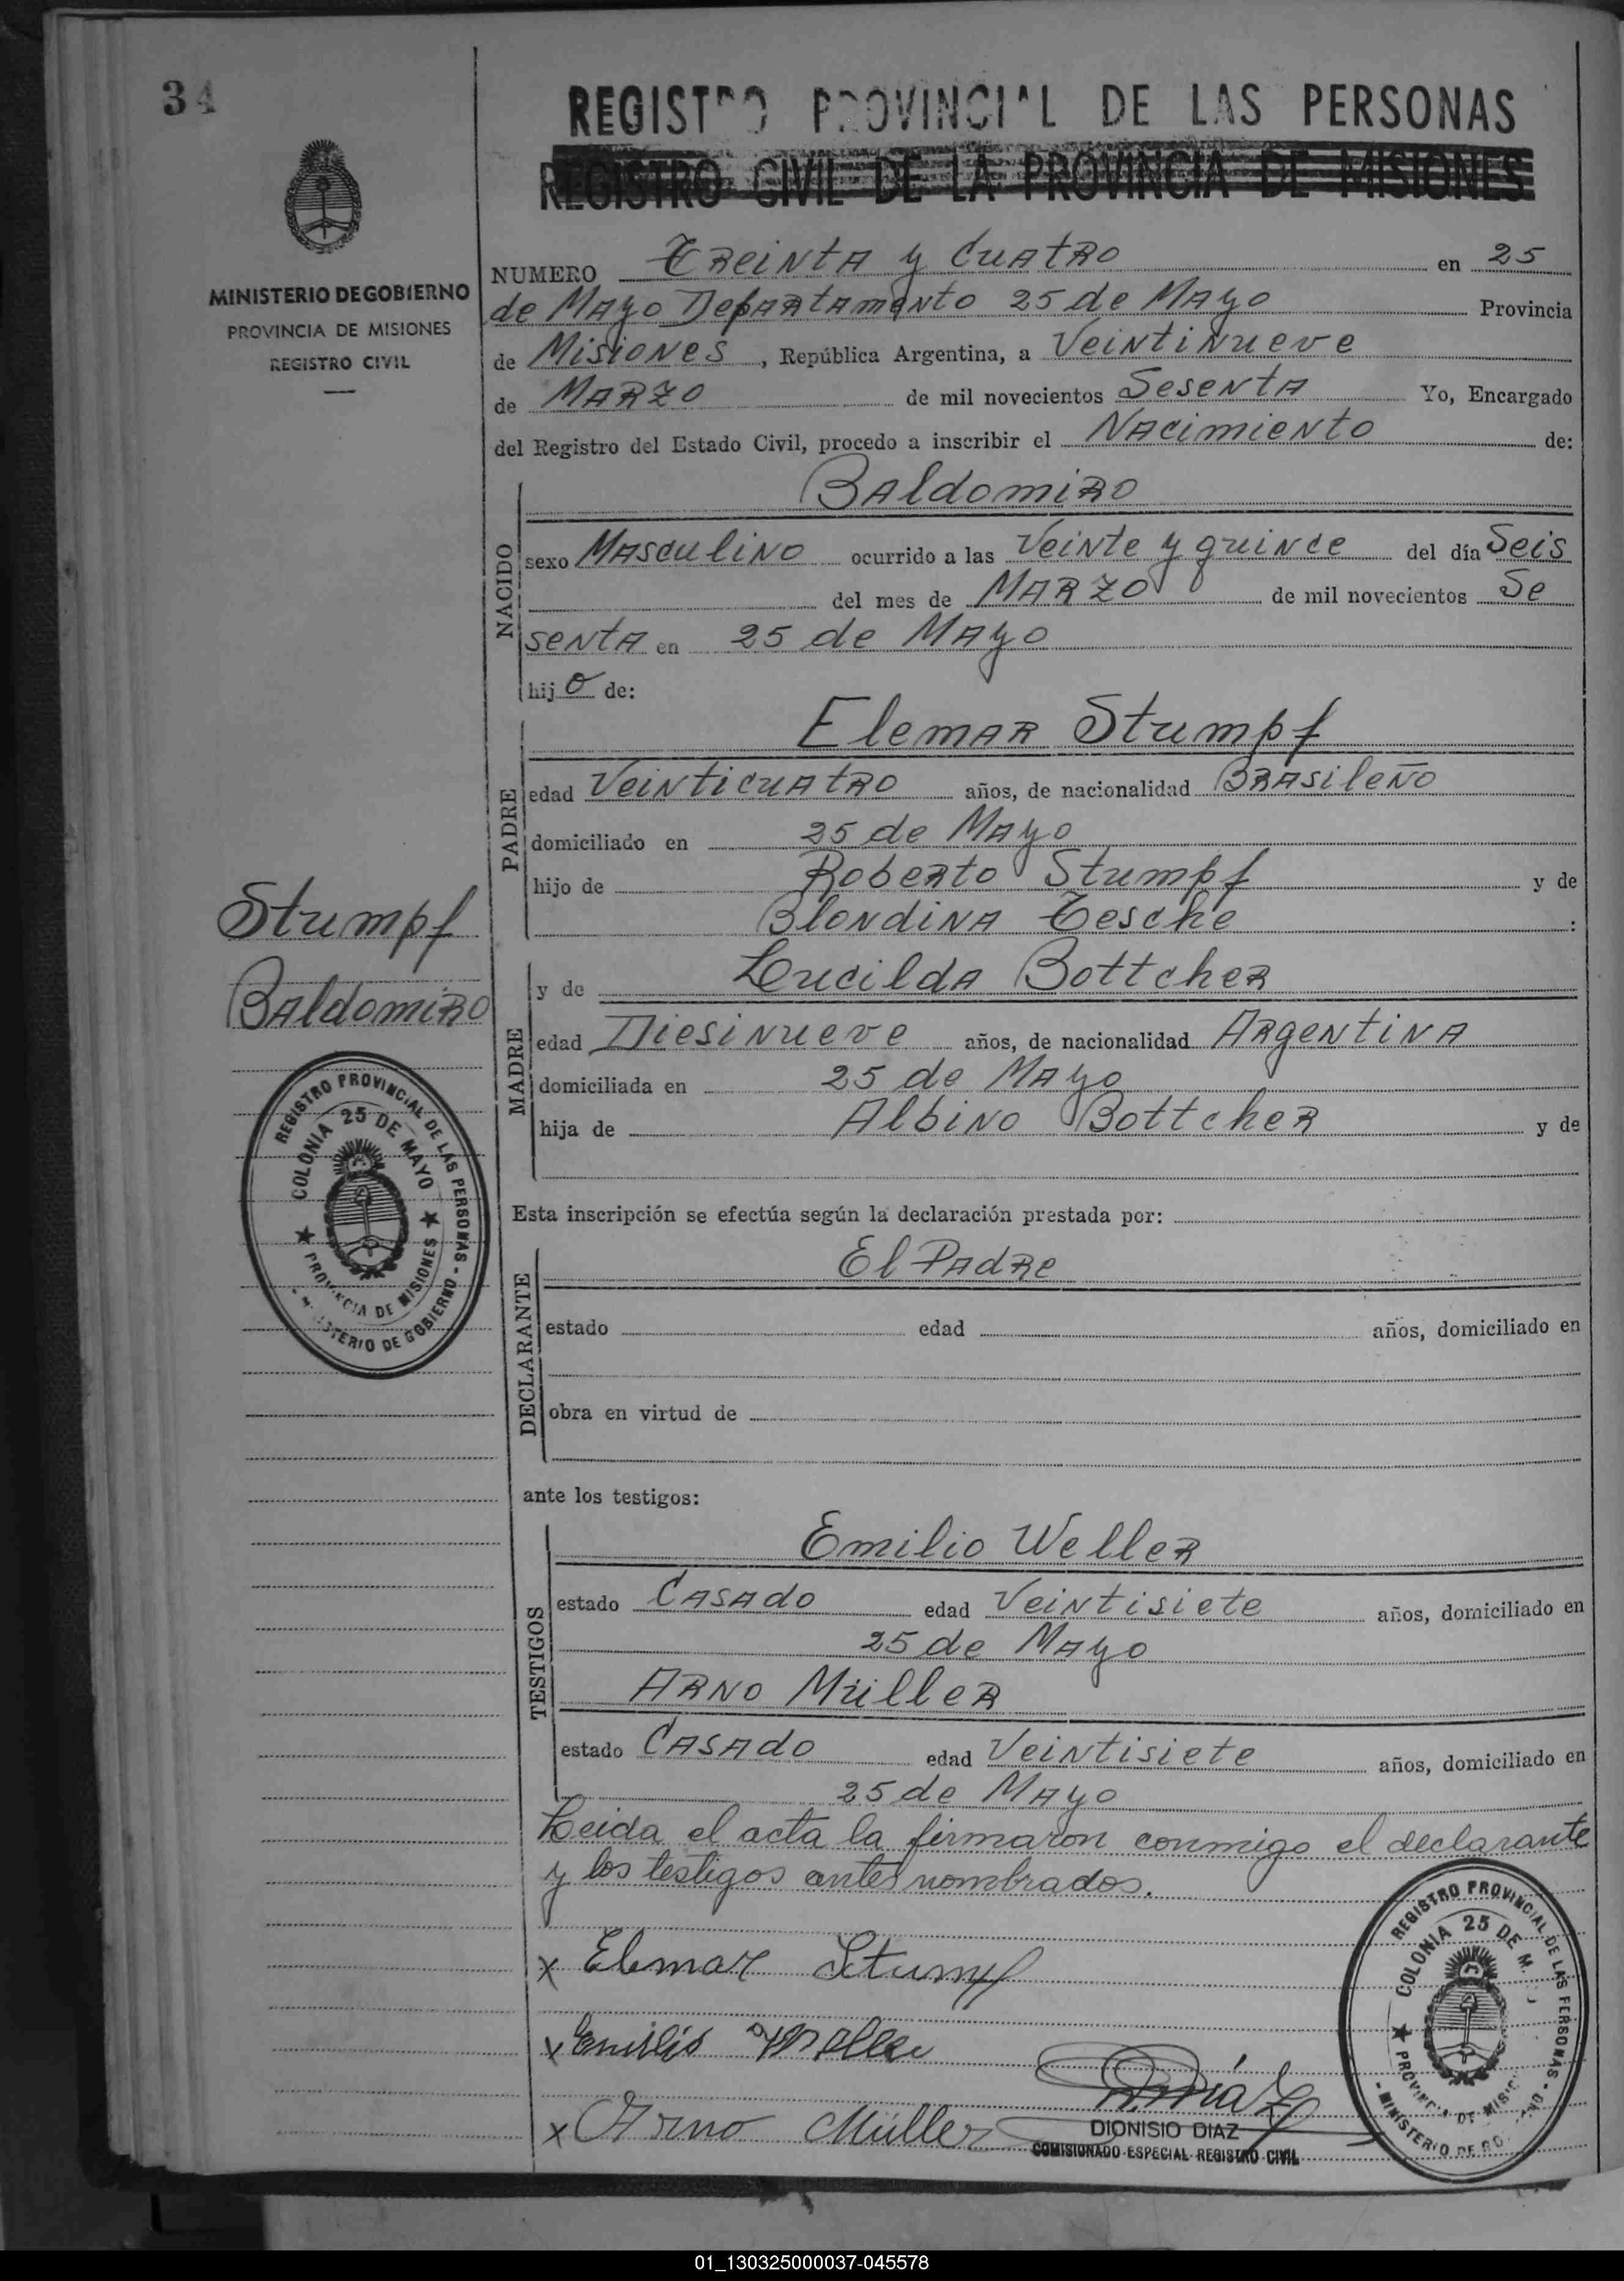 34
REGISTRO PROVINCIAL DE LAS PERSONAS
REGISTRO CIVIL DE LA PROVINCIA DE MISIONES
MINISTERIO DE GOBIERNO
PROVINCIA DE MISIONES
REGISTRO CIVIL
NUMERO Treinta y Cuatro en 25
de Mayo Departamento 25 de Mayo Provincia
de Misiones, República Argentina, a Veintinueve
de Marzo de mil novecientos Sesenta Yo, Encargado
del Registro del Estado Civil, procedo a inscribir el Nacimiento de:
NACIDO
Baldomiro
sexo Masculino ocurrido a las Veinte y quince del día Seis
del mes de Marzo de mil novecientos Se
senta en 25 de Mayo
hijo de:
PADRE
Elemar Stumpf
edad Veinticuatro años, de nacionalidad Brasileño
domiciliado en 25 de Mayo
hijo de Roberto Stumpf y de
Blondina Tesche :
Stumpf
Baldomiro
MADRE
y de Lucilda Bottcher
edad Diesinueve años, de nacionalidad Argentina
domiciliada en 25 de Mayo
hija de Albino Bottcher y de
REGISTRO PROVINCIAL DE LAS PERSONAS - MINISTERIO DE GOBIERNO -
COLONIA 25 DE MAYO
★ PROVINCIA DE MISIONES ★
Esta inscripción se efectúa según la declaración prestada por:
DECLARANTE
El Padre
estado edad años, domiciliado en
obra en virtud de
ante los testigos:
TESTIGOS
Emilio Weller
estado Casado edad Veintisiete años, domiciliado en
25 de Mayo
Arno Müller
estado Casado edad Veintisiete años, domiciliado en
25 de Mayo
Leida el acta la firmaron conmigo el declarante
y los testigos antes nombrados.
x Elemar Stumpf
x Emilio Weller
x Arno Müller
DIONISIO DIAZ
COMISIONADO ESPECIAL REGISTRO CIVIL
REGISTRO PROVINCIAL DE LAS PERSONAS - MINISTERIO DE GOBIERNO -
COLONIA 25 DE MAYO
★ PROVINCIA DE MISIONES
01_130325000037-045578